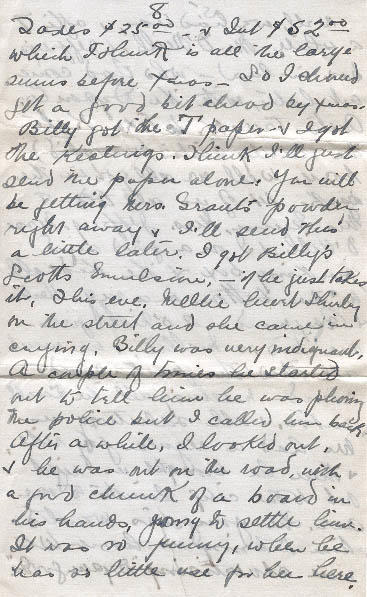 8
Taxes $25.00 - & Int $52.00
which I think is all the large
sums before Xmas - So I should
get a good bit ahead by Xmas.
Billy got the T paper - & I got
the Keatings. I think I'll just
send the paper alone. You will
be getting Mrs. Grants powder
right away & I'll send this
a little later. I got Billy's
Scotts Emulsion, - if he just takes
it. This eve. Nellie hurt Shirley
on the street and she came in
crying. Billy was very indignant.
A couple of times he started
out to tell him he was phoning
the police but I called him back
After a while, I looked out
& he was out on the road, with
a good chunk of a board in
his hands, going to settle him.
It was so funny, when he
has so little use for her here.